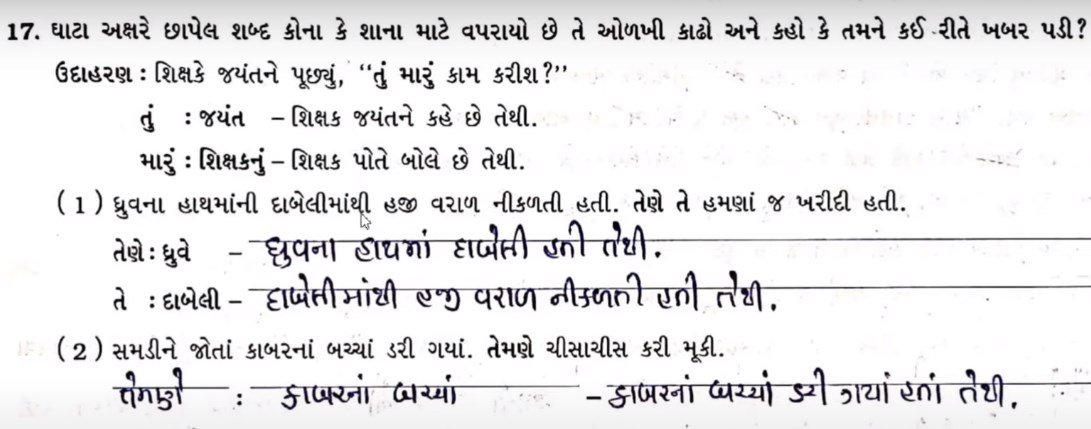 17. ઘાટા અક્ષરે છાપેલ શબ્દ કોના કે શાના માટે વપરાયો છે તે ઓળખી કાઢો અને કહો કે તમને કઈ રીતે ખબર પડી?
ઉદાહરણ : શિક્ષકે જયંતને પૂછ્યું, “તું મારું કામ કરીશ?”
તું : જયંત – શિક્ષક જયંતને કહે છે તેથી.
મારું : શિક્ષકનું – શિક્ષક પોતે બોલે છે તેથી.
(1) ધ્રુવના હાથમાંની દાબેલીમાંથી હજી વરાળ નીકળતી હતી. તેણે તે હમણાં જ ખરીદી હતી.
તેણે : ધ્રુવે – ધ્રુવના હાથમાં દાબેલી હતી તેથી.
તે : દાબેલી – દાબેલીમાંથી હજી વરાળ નીકળતી હતી તેથી.
(2) સમડીને જોતાં કાબરનાં બચ્ચાં ડરી ગયાં. તેમણે ચીસાચીસ કરી મૂકી.
તેમણે : કાબરનાં બચ્ચાં – કાબરનાં બચ્ચાં ડરી ગયાં હતાં તેથી.